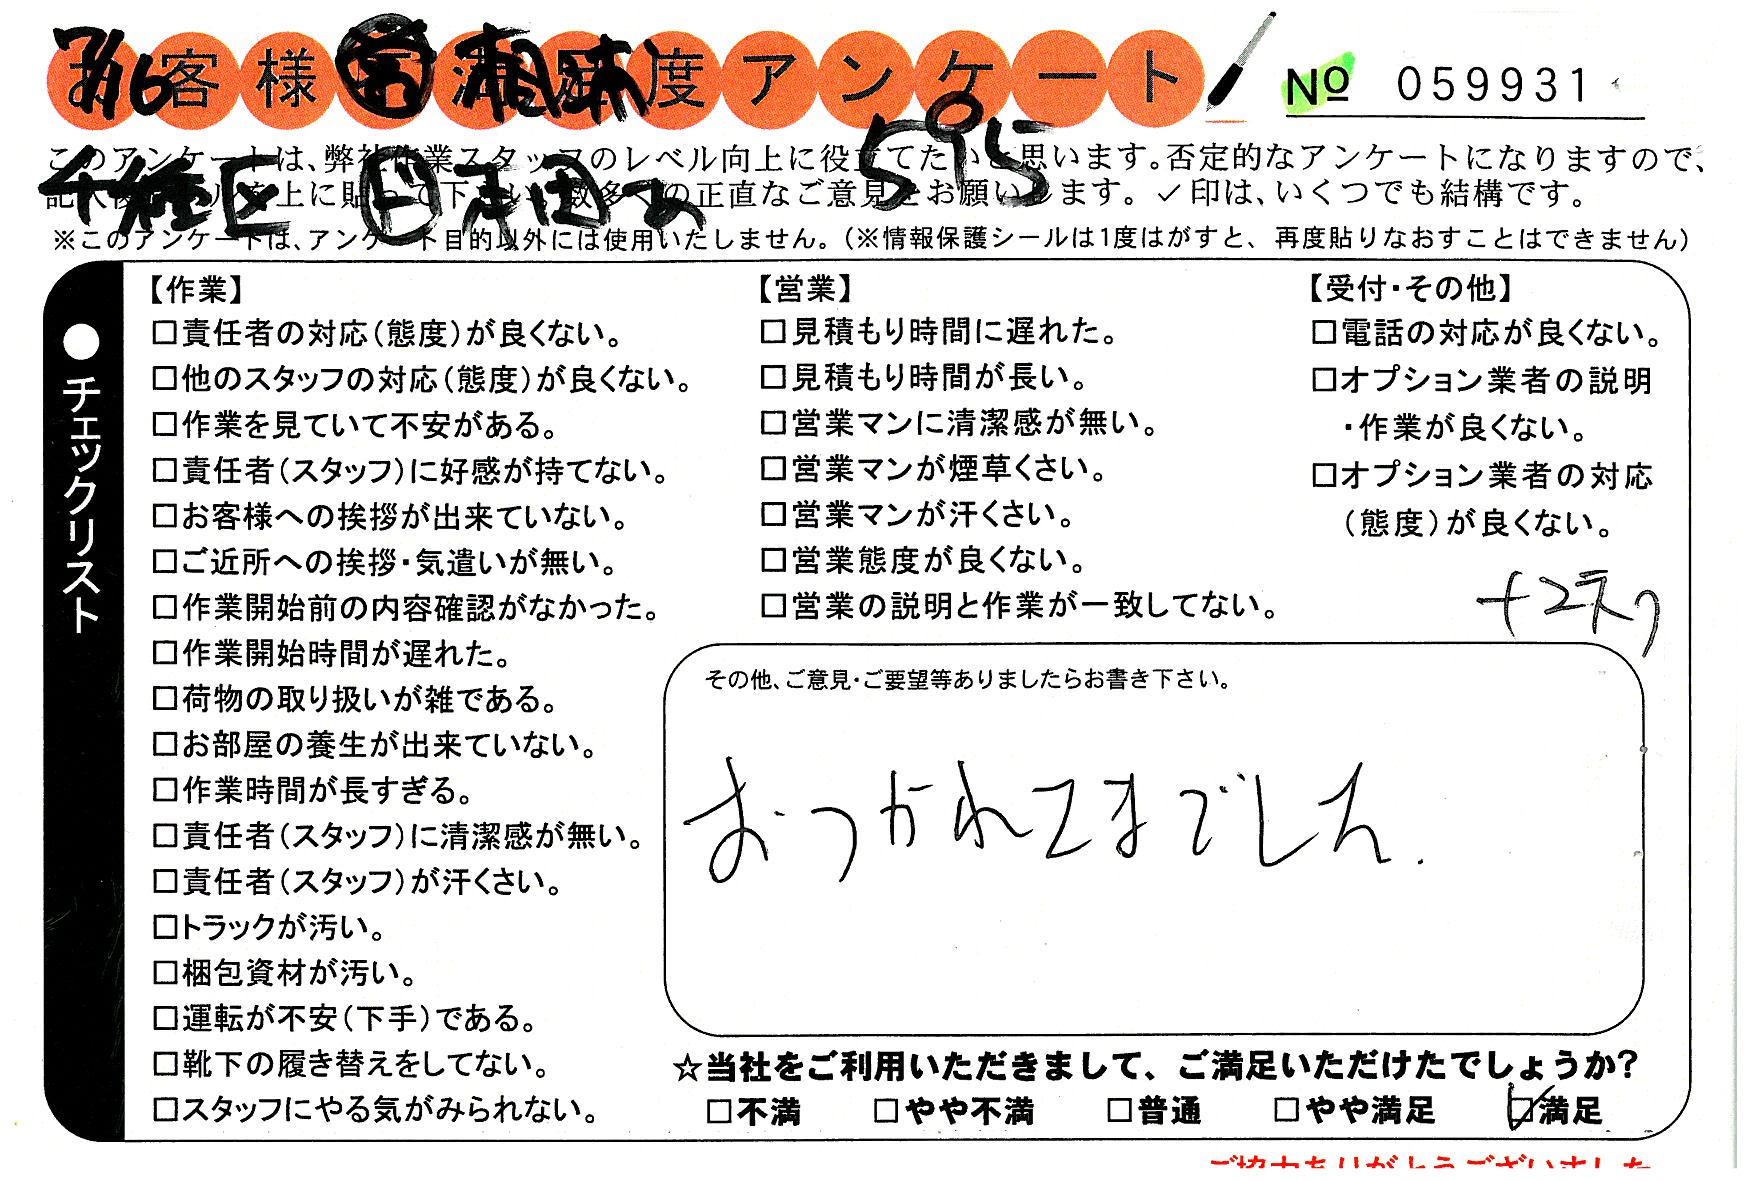 お客様満足度アンケート
7/16
№ 059931
595
このアンケートは、弊社作業スタッフのレベル向上に役立てたいと思います。否定的なアンケートになりますので、
千種区
数多くの正直なご意見をお願いします。✓印は、いくつでも結構です。
※このアンケートは、アンケート目的以外には使用いたしません。(※情報保護シールは1度はがすと、再度貼りなおすことはできません)
●チェックリスト
【作業】
□責任者の対応(態度)が良くない。
□他のスタッフの対応(態度)が良くない。
□作業を見ていて不安がある。
□責任者(スタッフ)に好感が持てない。
□お客様への挨拶が出来ていない。
□ご近所への挨拶・気遣いが無い。
□作業開始前の内容確認がなかった。
□作業開始時間が遅れた。
□荷物の取り扱いが雑である。
□お部屋の養生が出来ていない。
□作業時間が長すぎる。
□責任者(スタッフ)に清潔感が無い。
□責任者(スタッフ)が汗くさい。
□トラックが汚い。
□梱包資材が汚い。
□運転が不安(下手)である。
□靴下の履き替えをしてない。
□スタッフにやる気がみられない。
【営業】
□見積もり時間に遅れた。
□見積もり時間が長い。
□営業マンに清潔感が無い。
□営業マンが煙草くさい。
□営業マンが汗くさい。
□営業態度が良くない。
□営業の説明と作業が一致してない。
【受付・その他】
□電話の対応が良くない。
□オプション業者の説明
・作業が良くない。
□オプション業者の対応
(態度)が良くない。
その他、ご意見・ご要望等ありましたらお書き下さい。
おつかれさまでした.
☆当社をご利用いただきまして、ご満足いただけたでしょうか?
□不満 □やや不満 □普通 □やや満足 ☑満足
ご協力ありがとうございました